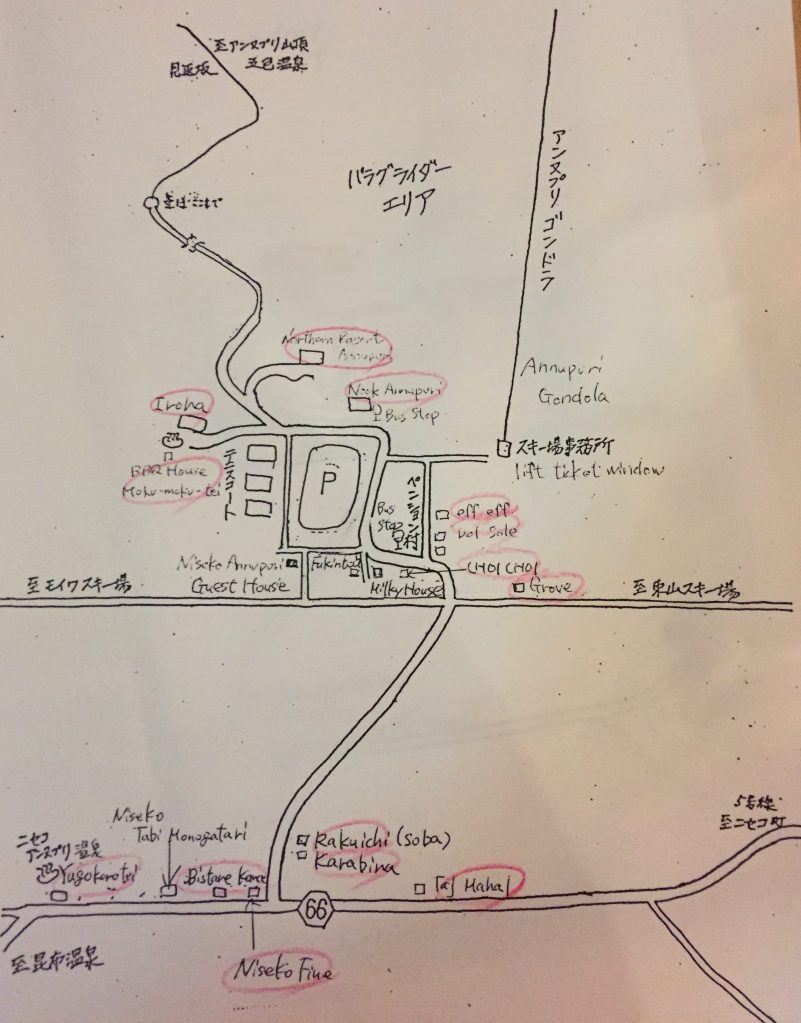 至アンヌプリ山頂
見返坂
五色温泉
パラグライダー
エリア
アンヌプリゴンドラ
Northern Resort
Annupuri
Nook Annupuri
Bus Stop
Annupuri
Gondola
Iroha
BBQ House
Moku-moku-tei
テニスコート
P
スキー場事務所
lift ticket window
ペンション村
Bus
Stop
off off
vol Sole
Niseko Annupuri
Guest House
Milky House
CHOI CHOI
Grove
至モイワスキー場
至東山スキー場
5号線
至ニセコ町
Niseko
Tabi Monogatari
ニセコ
アンヌプリ温泉
Yugokorotei
Bistare Kana
Rakuichi (Soba)
Karabina
Taj Mahal
66
至昆布温泉
Niseko Fine